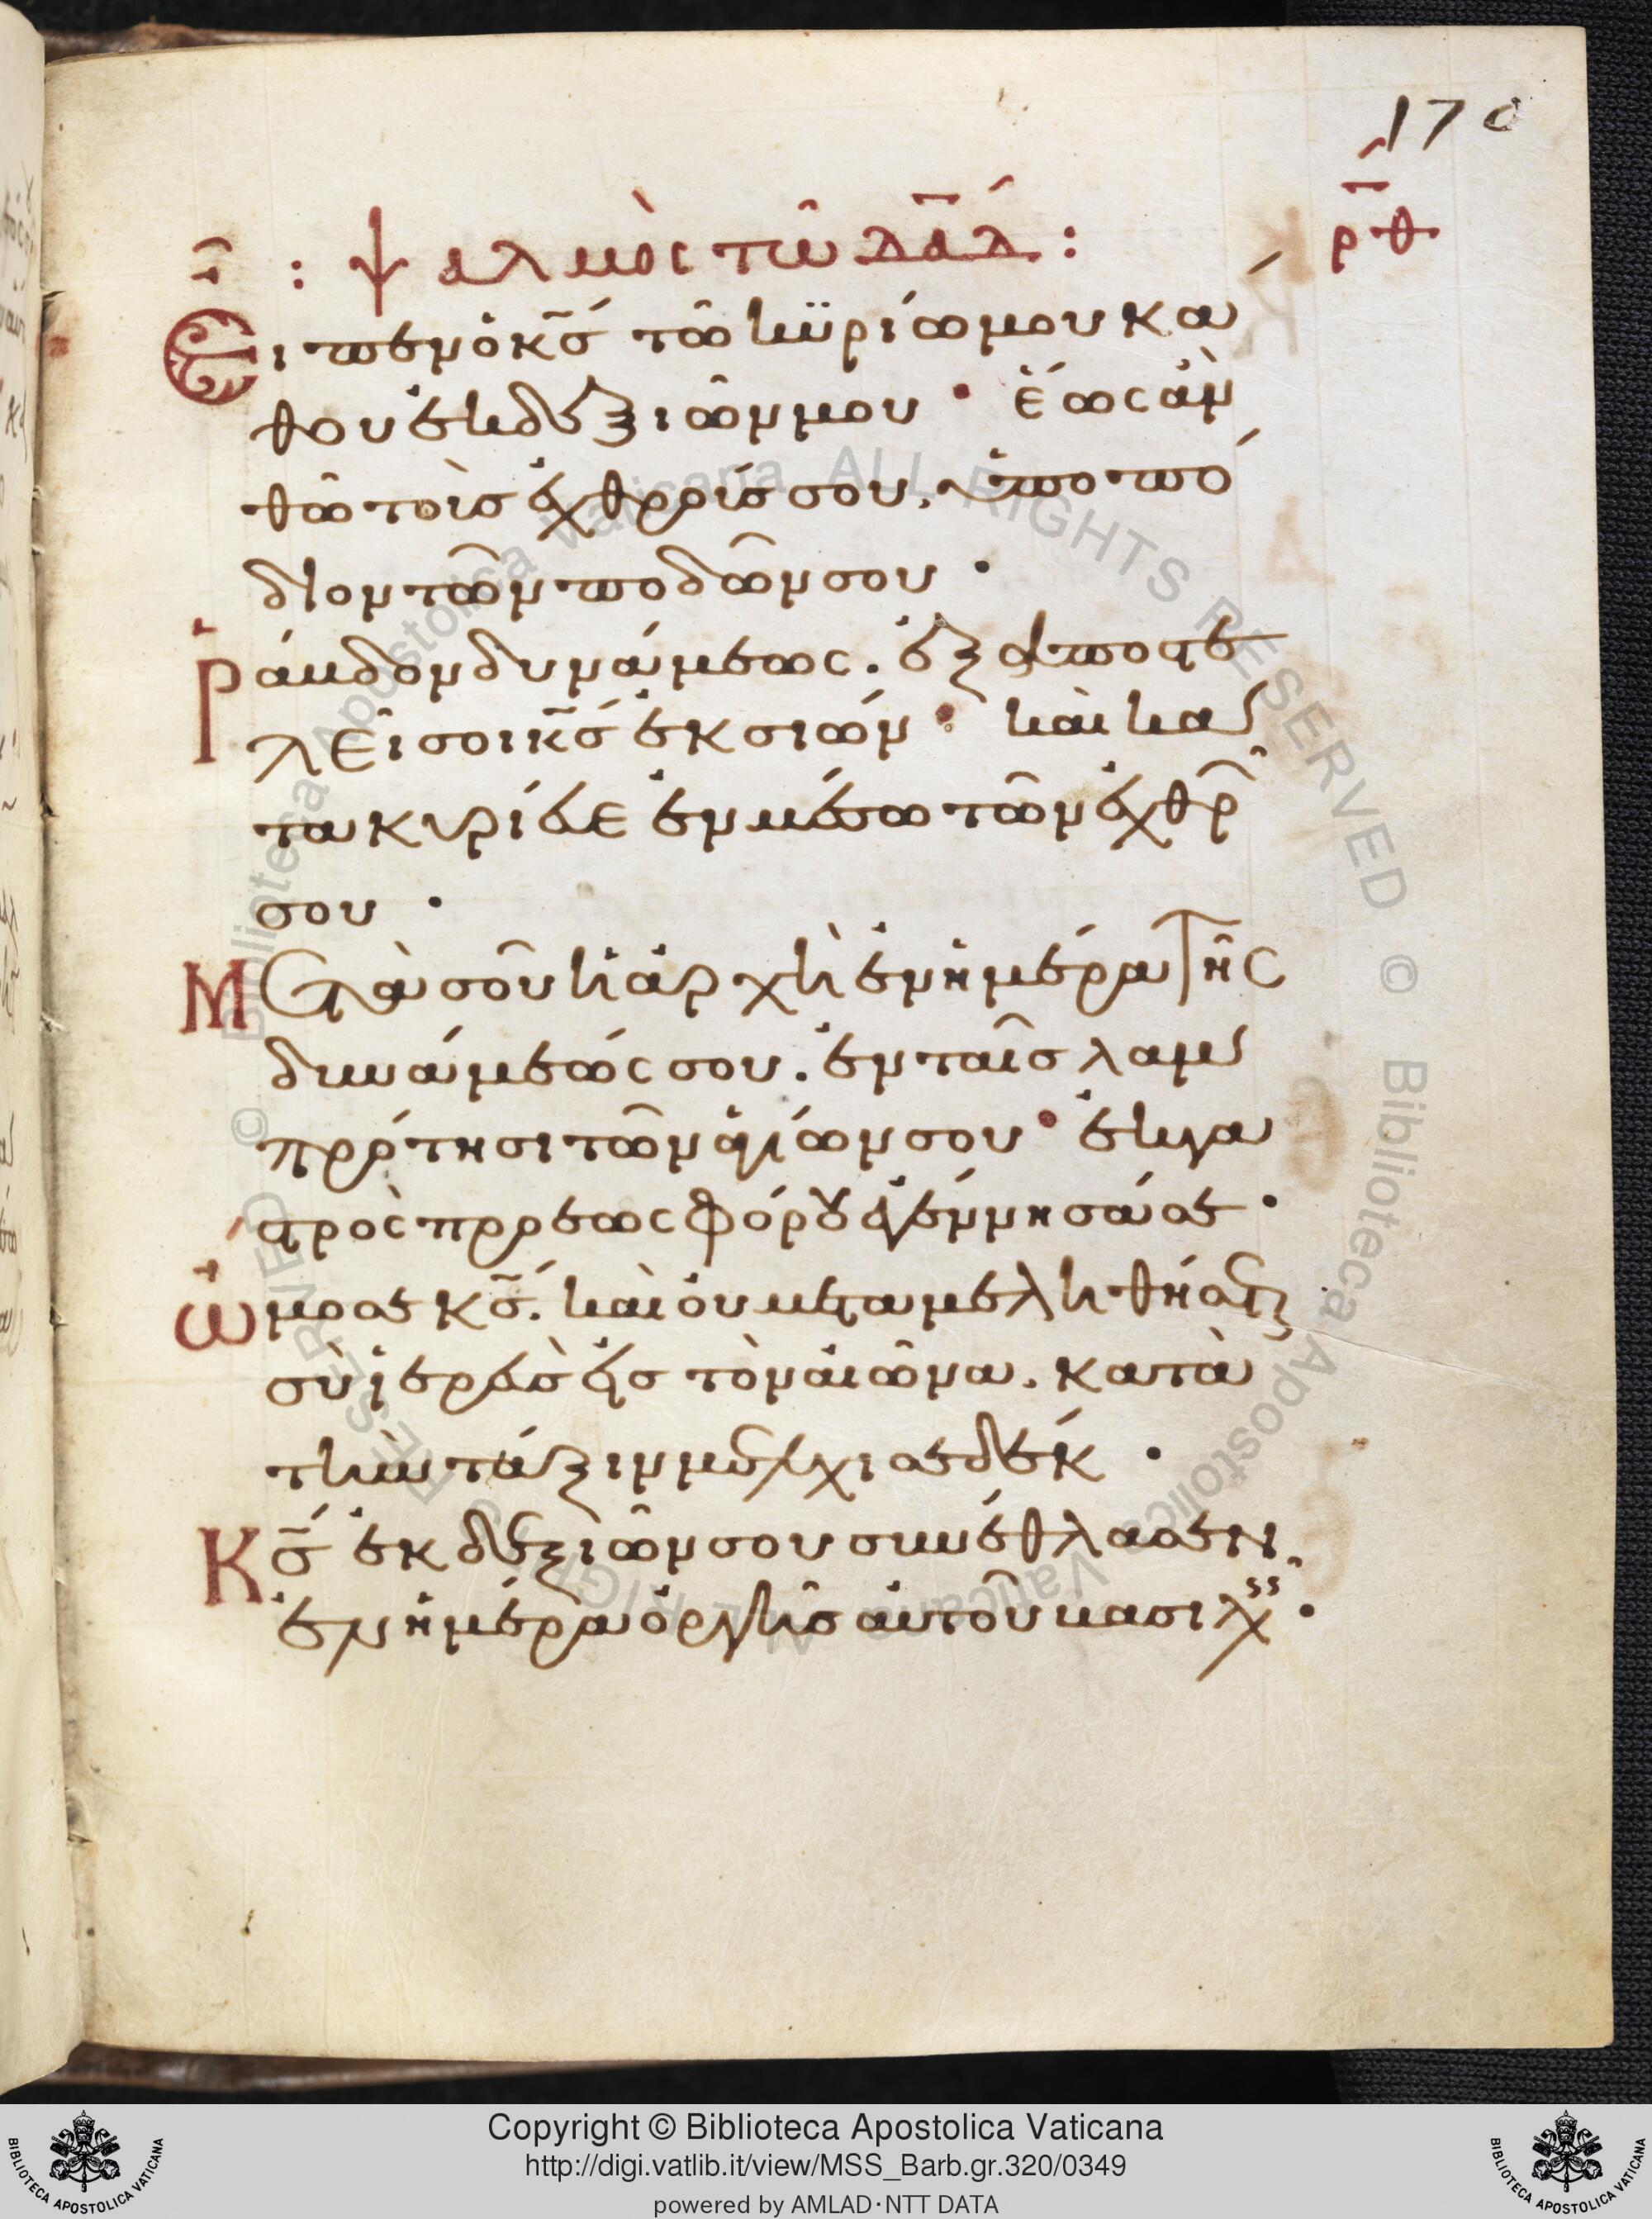 170
ρθ
: ψαλμὸς τῶ δαδ :
Εἶπεν ὁ κς τῶ κυρίω μου κα
θου ἐκ δεξιῶν μου · ἕως ἂν
θῶ τοὺς ἐχθρούς σου, ὑποπό
διον τῶν ποδῶν σου ·
Ράβδον δυνάμεως. ἐξαποστε
λεῖ σοι κς ἐκ σιών · καὶ κα
τακυρίευε ἐν μέσω τῶν ἐχθρ
σου ·
Μετὰ σοῦ ἡ ἀρχὴ ἐν ἡμέρα τῆς
δυνάμεώς σου. ἐν ταῖς λαμ
πρότησι τῶν ἁγίων σου · ἐκ γα
στρὸς πρὸ ἑωσφόρου ἐγέννησά σε ·
Ὤμοσε κς. καὶ οὐ μεταμεληθήσεται
σὺ ἱερεὺς εἰς τὸν αἰῶνα. κατὰ
τὴν τάξιν μελχισεδέκ ·
Κς ἐκ δεξιῶν σου συνέθλασεν
ἐν ἡμέρα ὀργῆς αὐτοῦ βασιλ ·
© Biblioteca Apostolica Vaticana ALL RIGHTS RESERVED © Biblioteca Apostolica Vaticana ALL RIGHTS RESERVED
Copyright © Biblioteca Apostolica Vaticana
http://digi.vatlib.it/view/MSS_Barb.gr.320/0349
powered by AMLAD·NTT DATA
BIBLIOTECA APOSTOLICA VATICANA
BIBLIOTECA APOSTOLICA VATICANA